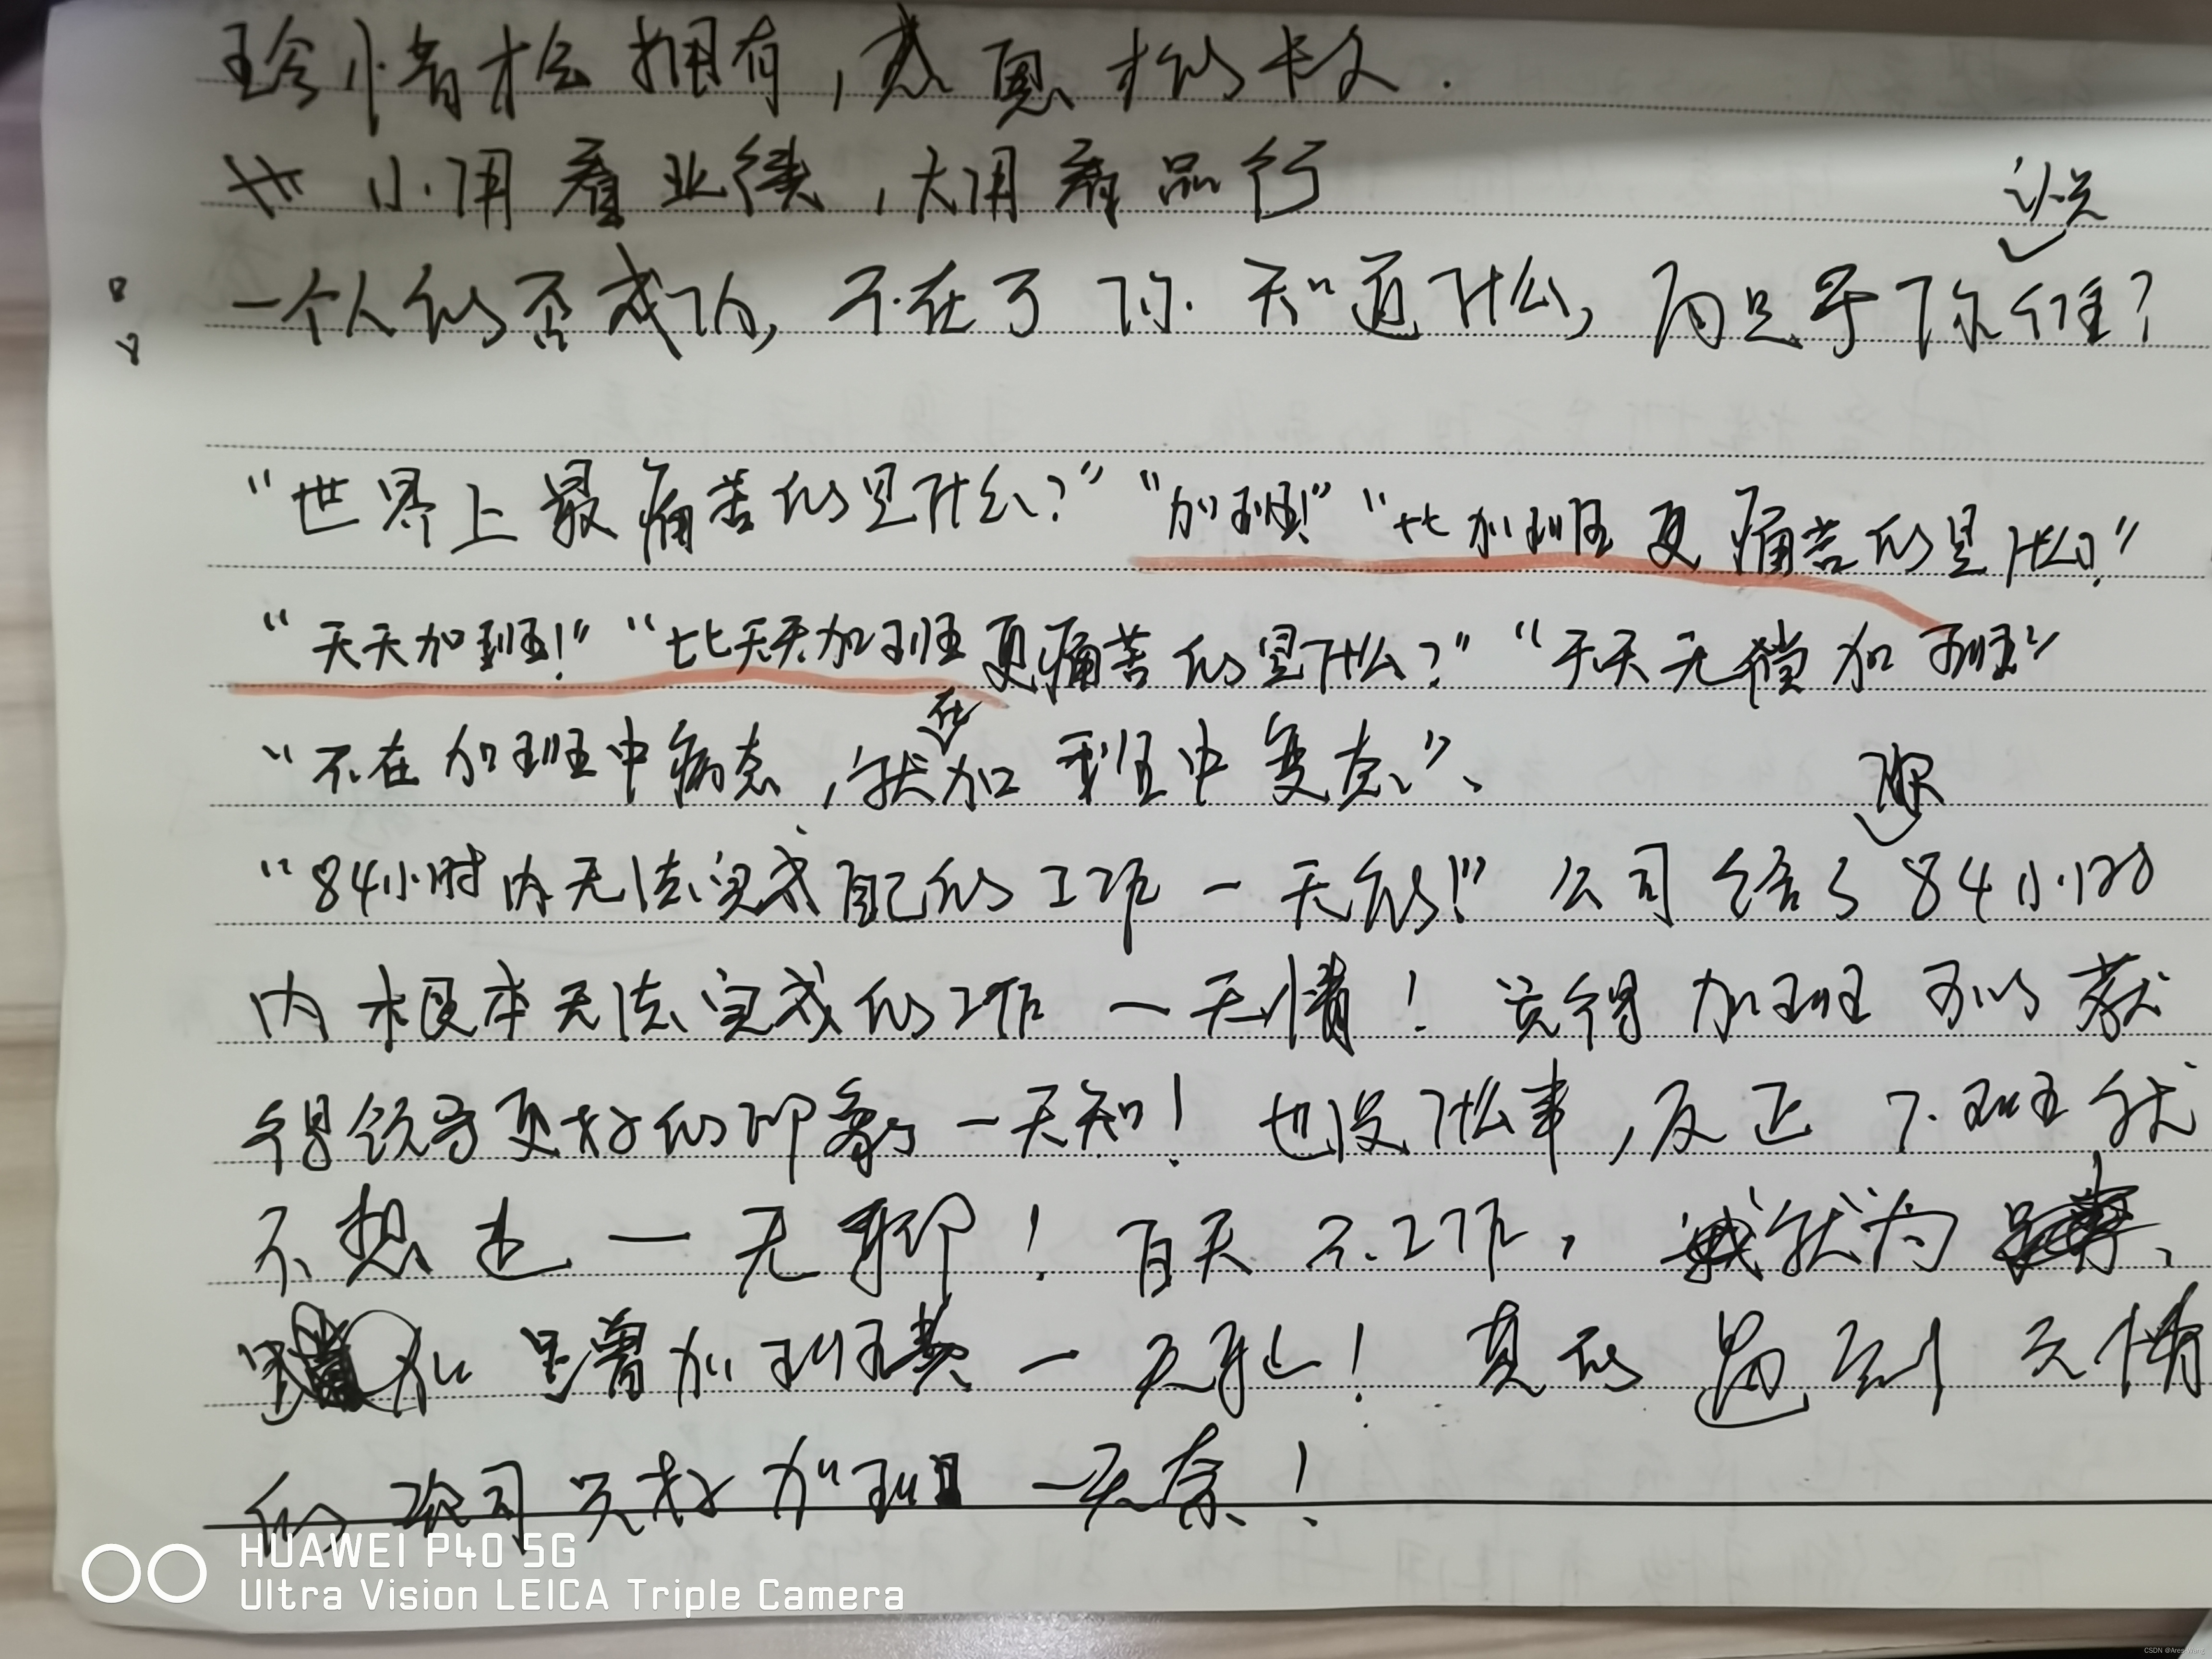 珍惜才会拥有，感恩才能长久.
小用看业绩，大用看品行
一个人能否成功，不在于你知道什么，而是于你说谁？
“世界上最痛苦的是什么？”“加班！”“比加班更痛苦的是什么？”
“天天加班！”“比天天加班更痛苦的是什么？”“天天无偿加班”
“不在加班中病态，就在加班中变态”、
“84小时内无法完成自己的工作一无能！”公司给了你84小时
内根本无法完成的工作一无情！觉得加班可以获
得领导更好的印象一无知！也没什么事，反正下班就
不想走一无聊！百天不工作，就为
是曾加班费一无耻！真的遇到无情
的公司只好加班一无奈！
HUAWEI P40 5G
Ultra Vision LEICA Triple Camera